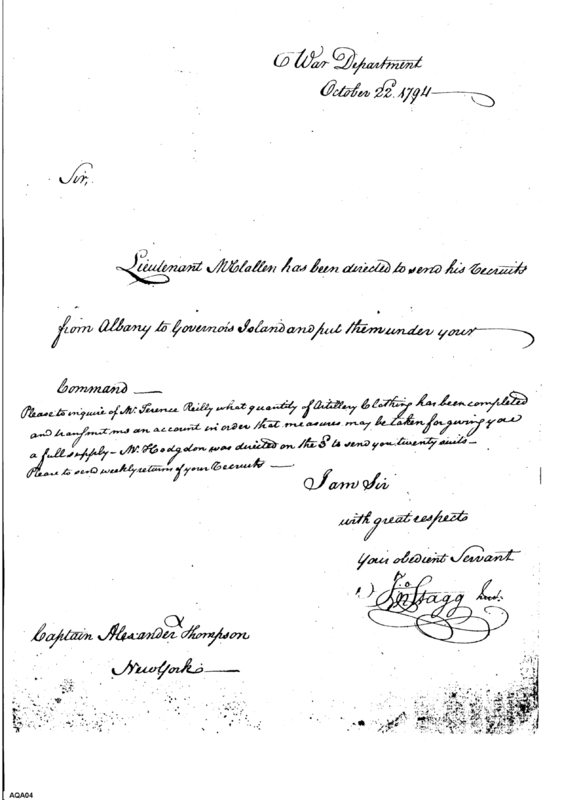 War Department
October 22d. 1794
Sir,
Lieutenant McClallen has been directed to send his Recruits
from Albany to Governors Island and put them under your
Command —
Please to inquire of Mr. Terence Reilly what quantity of Artillery Clothing has been completed
and transmit me an account in order that measures may be taken for giving you
a full supply – Mr. Hodgdon was directed on the 8th to send you twenty suits –
Please to send weekly returns of your Recruits —
I am Sir
with great respects
Your obedient Servant
Jno Stagg Junr.
Captain Alexander Thompson
New York —
AQA04